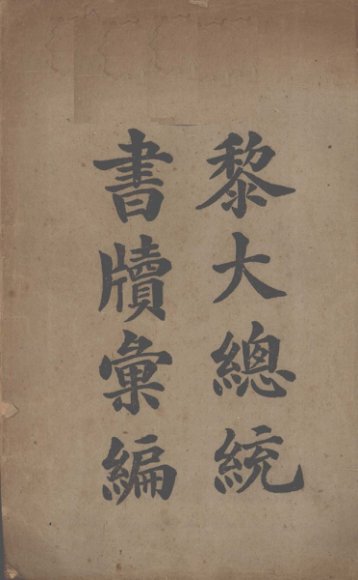 黎大總統
書牘彙編